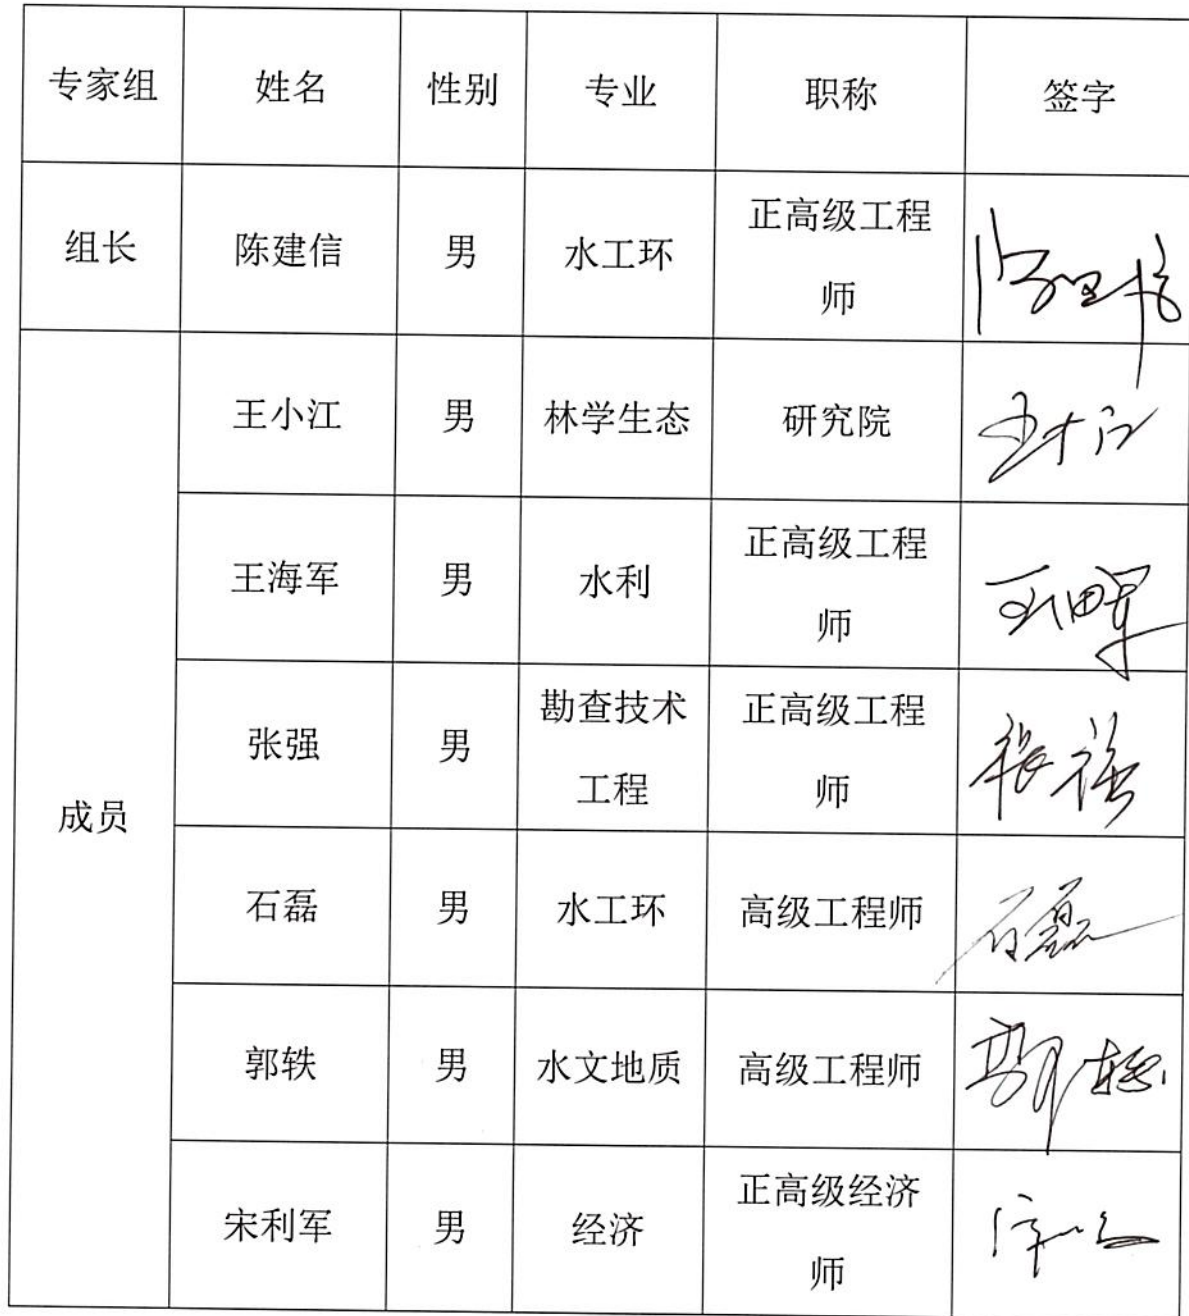 专家组 姓名 性别 专业 职称 签字
组长 陈建信 男 水工环 正高级工程
师
成员
王小江 男 林学生态 研究院
王海军 男 水利 正高级工程
师
张强 男 勘查技术 正高级工程 张强
工程 师
石磊 男 水工环 高级工程师 石磊
郭轶 男 水文地质 高级工程师
宋利军 男 经济 正高级经济
师